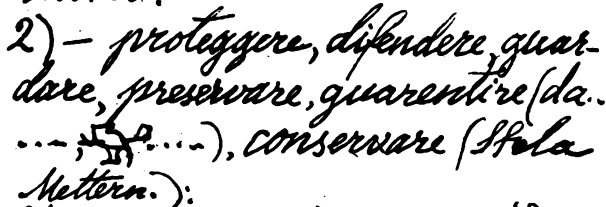 2) — proteggere, difendere, guar-
dare, preservare, guarentire (da..
...., ....), conservare (Stela
Mettern.):